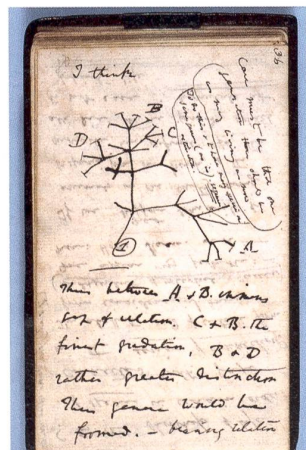 36
I think
Case must be that one generation then should be as many living as now
To do this & to have many species in same genus (as is) requires extinction
B
D
C
A
1
Thus between A & B. immens
gap of relation. C & B. the
finest gradation, B & D
rather greater distinction
Thus genera would be
formed. — bearing relation